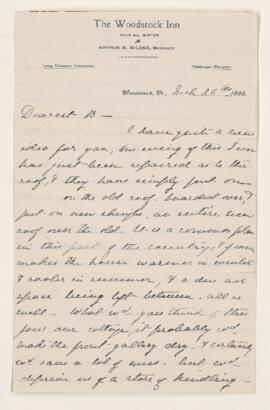 The Woodstock Inn
OPEN ALL WINTER
ARTHUR B. WILDER, MANAGER
Long Distance Telephone. Passenger Elevator.
Woodstock, Vt., 26th 1906
Dearest B—
I have quite a new
idea for you, the wing of this Inn
has just been repaired as to the
roof, & they have simply put on—
on the old roof, boarded over &
put on new shingles, an entire new
roof over the old. It is a common plan
in this part of the country, & of course
makes the house warmer in winter
& cooler in summer, & a dead air
space being left between. all is
well— What wd you think of this
for our cottage, it probably wd
make the front gallery dry— & certainly
wd save a lot of mess. but wd
deprive us of a store of kindling—